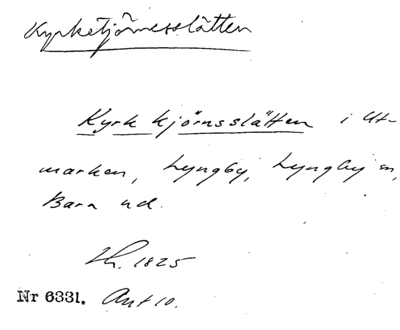 Kyrketjörnesslätten
Kyrk kjörnsslätten i Ut-
marken, Lyngby, Lyngby sn,
Bara hd.
Lh. 1825
Nr 6331. Ant 10.